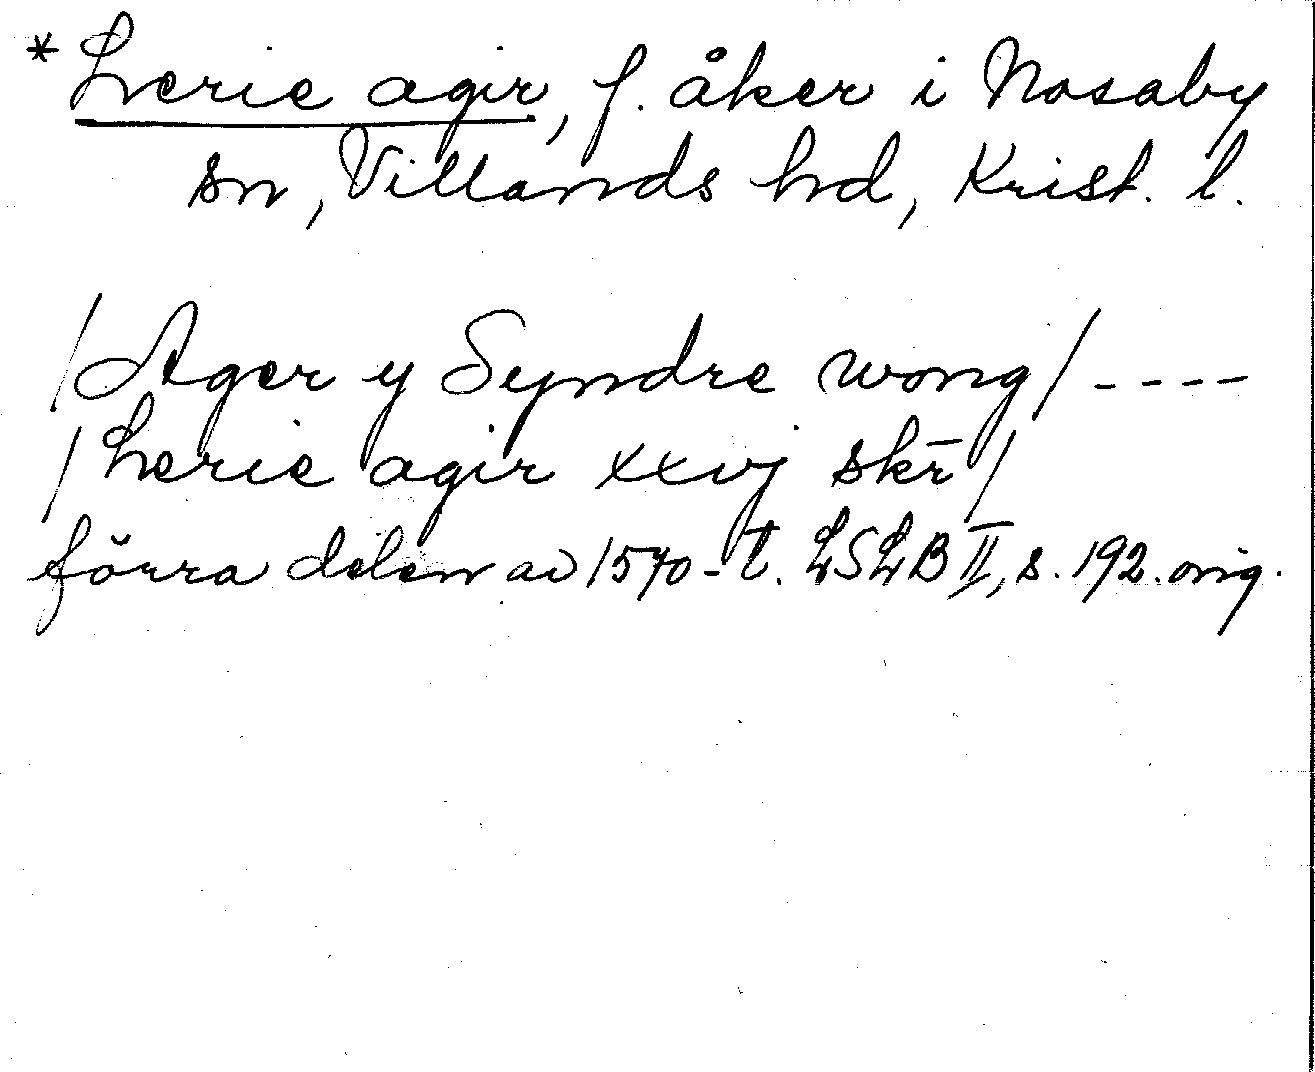 *Lerie agir, f. åker i Nosaby
sn, Villands hd, Krist. l.
/Ager y Syndre wong/ ----
/Lerie agir xxvj skr̄/
förra delen av 1570-t. LSLB II, s. 192. orig.